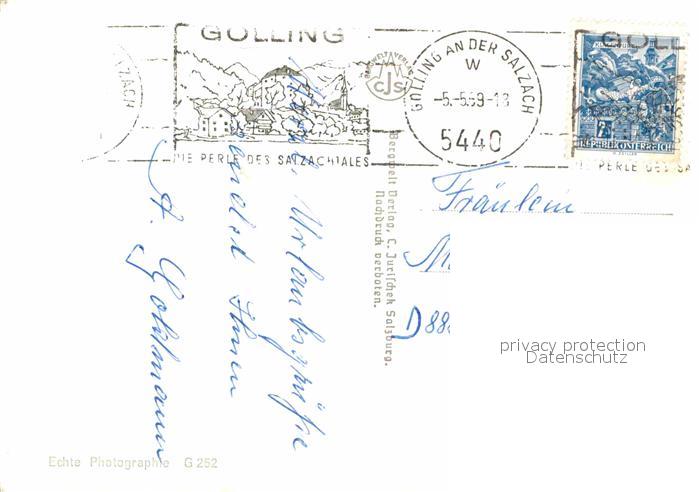 GOLLING
DIE PERLE DES SALZACHTALES
SALZACH
GOLLING AN DER SALZACH
W
-5.-5.69-18
5440
GOLL
REPUBLIK ÖSTERREICH
PERLE DES SA
BERGWELTVERLAG
CJS
Urlaubsgrüße
sendet Ihnen
A.
Bergwelt Verlag, C. Jurischek Salzburg.
Nachdruck verboten.
Fräulein
M
D88
privacy protection
Datenschutz
Echte Photographie G 252